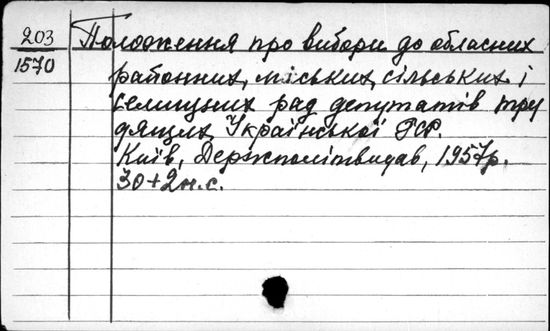 203
1570
Положення про вибори до обласних
районних, міських, сільських і
селищних рад депутатів тру
дящих Української РСР.
Київ, Держполітвидав, 1957р.
30+2н.с.